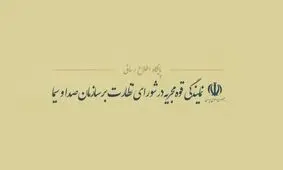 پایگاه اطلاع رسانی
نمایندگی قوه مجریه در شورای نظارت بر سازمان صدا و سیما